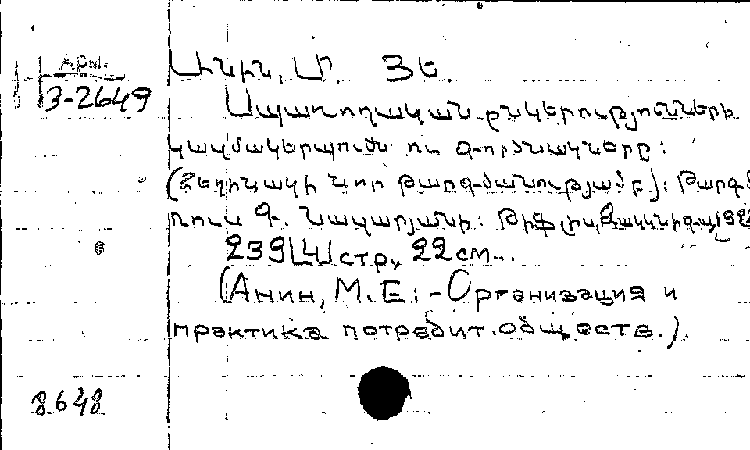 Арм.
3-2649
Անին, Մ. Յե.
Սպառողական ընկերությունների
կազմակերպումն ու գործնականը:
(Հեղինակի նոր թարգմանությամբ): Թարգմ.
ռուս. Գ. Նակարյանի: Թիֆլիս,
239[4] стр., 22 см..
(Анин, М.Е. - Организация и
практика потребит. обществ.)
8648